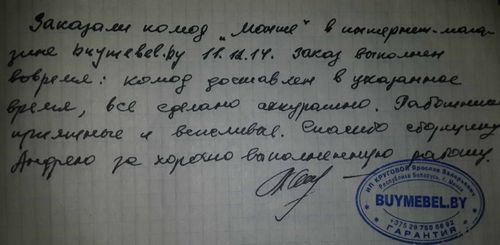 Заказали комод „Монте" в интернет-мага-
зине buymebel.by 11.12.14. Заказ выполнен
вовремя: комод доставлен в указанное
время, все сделано аккуратно. Работники
приятные и вежливые. Спасибо сборщику
Андрею за хорошо выполненную работу.
ИП КРУГОВОЙ Ярослав Валерьевич
Республика Беларусь, г. Минск
BUYMEBEL.BY
+375 29 750 58 92
ГАРАНТИЯ